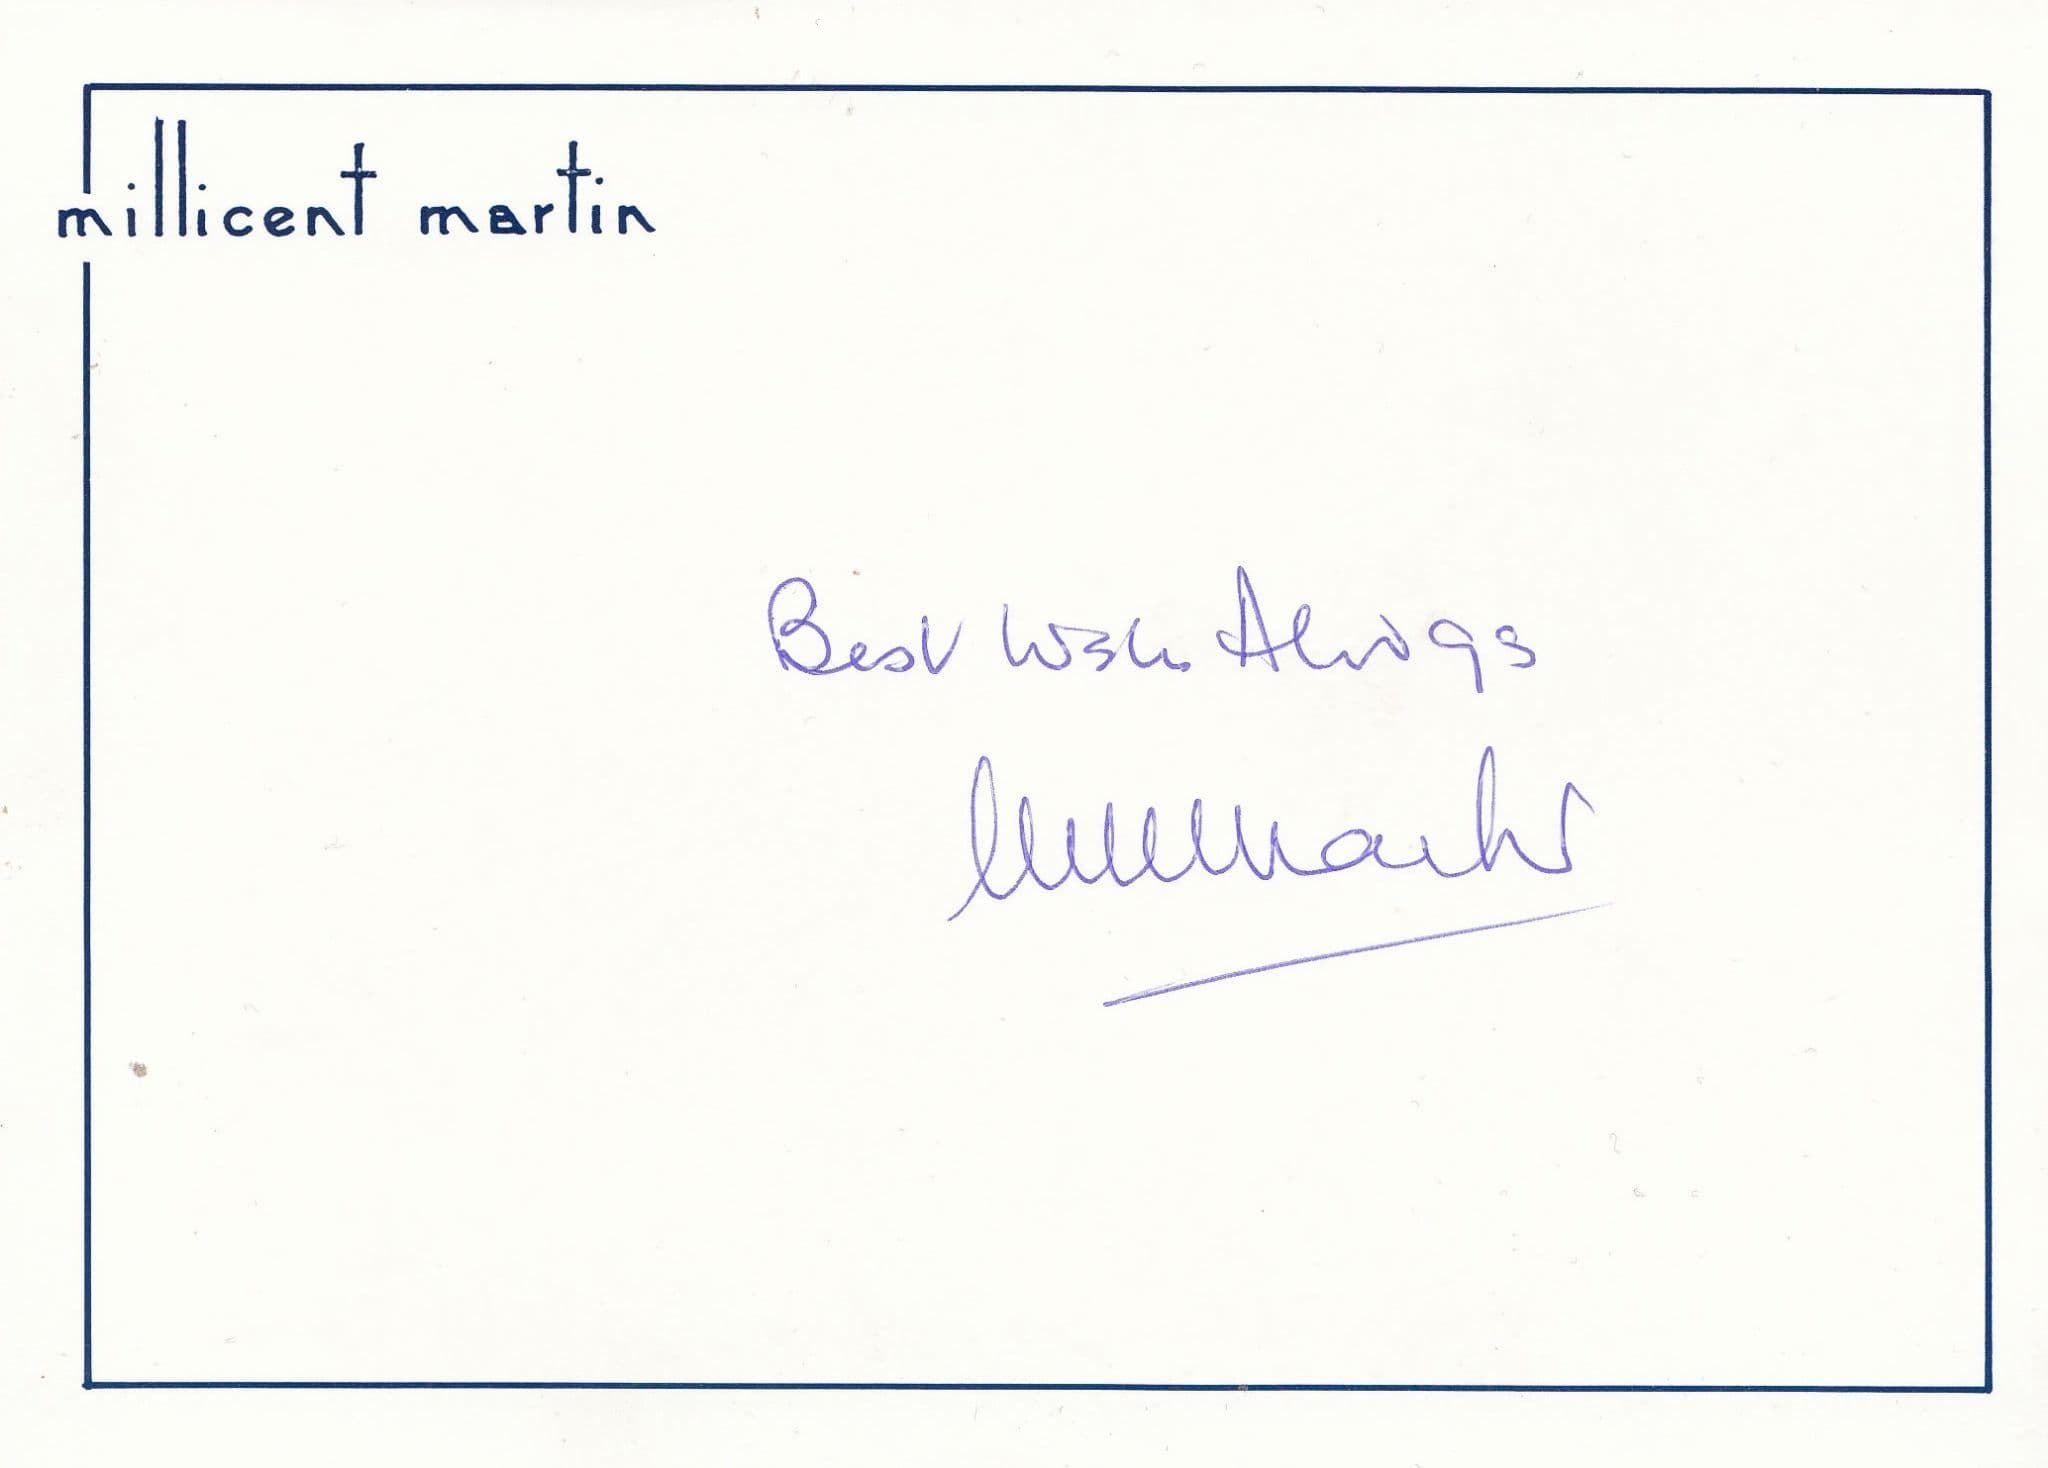 millicent martin
Best Wishes Always
Millicent Martin